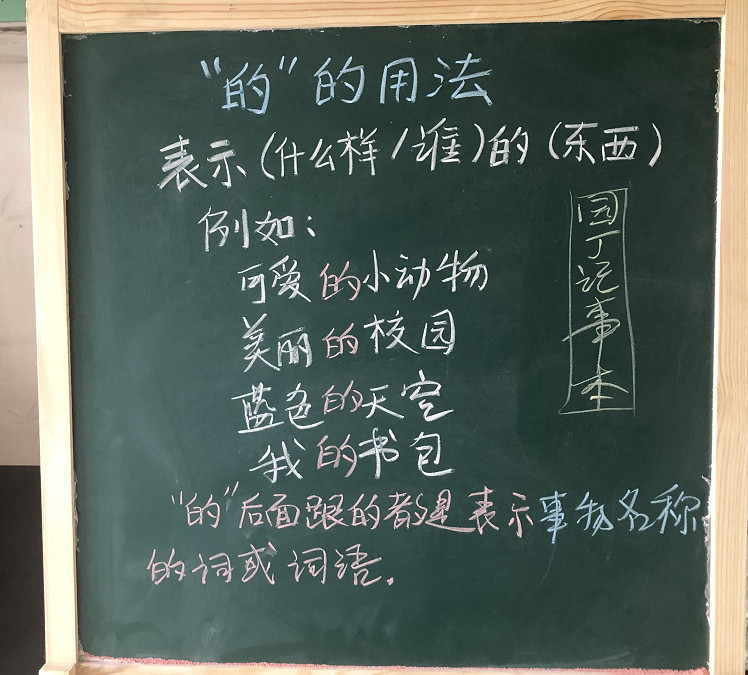 “的”的用法
表示(什么样/谁)的(东西)
例如:
可爱的小动物
美丽的校园
蓝色的天空
我的书包
“的”后面跟的都是表示事物名称
的词或词语.
园丁记事本